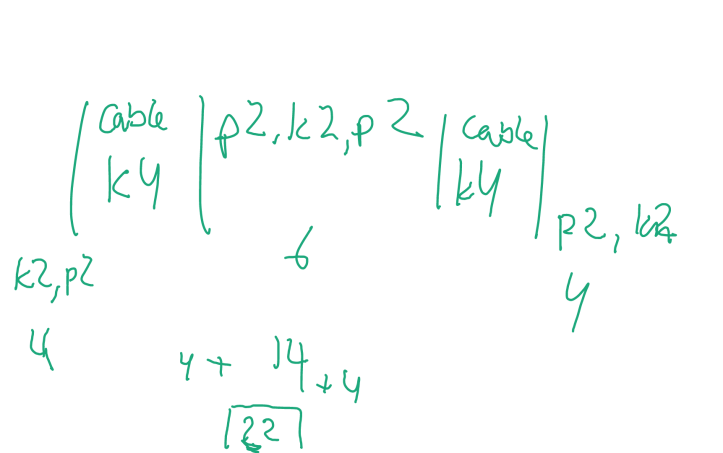 cable p2, k2, p2 cable
k4 k4
p2, k2
k2, p2 6 4
4
4 + 14 + 4
22